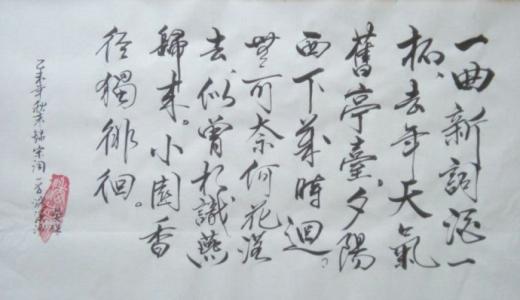 一曲新詞酒一
杯、去年天氣
舊亭臺、夕陽
西下幾時迴。
無可奈何花落
去、似曾相識燕
歸來。小園香
徑獨徘徊。
未年秋末錄宋詞一首